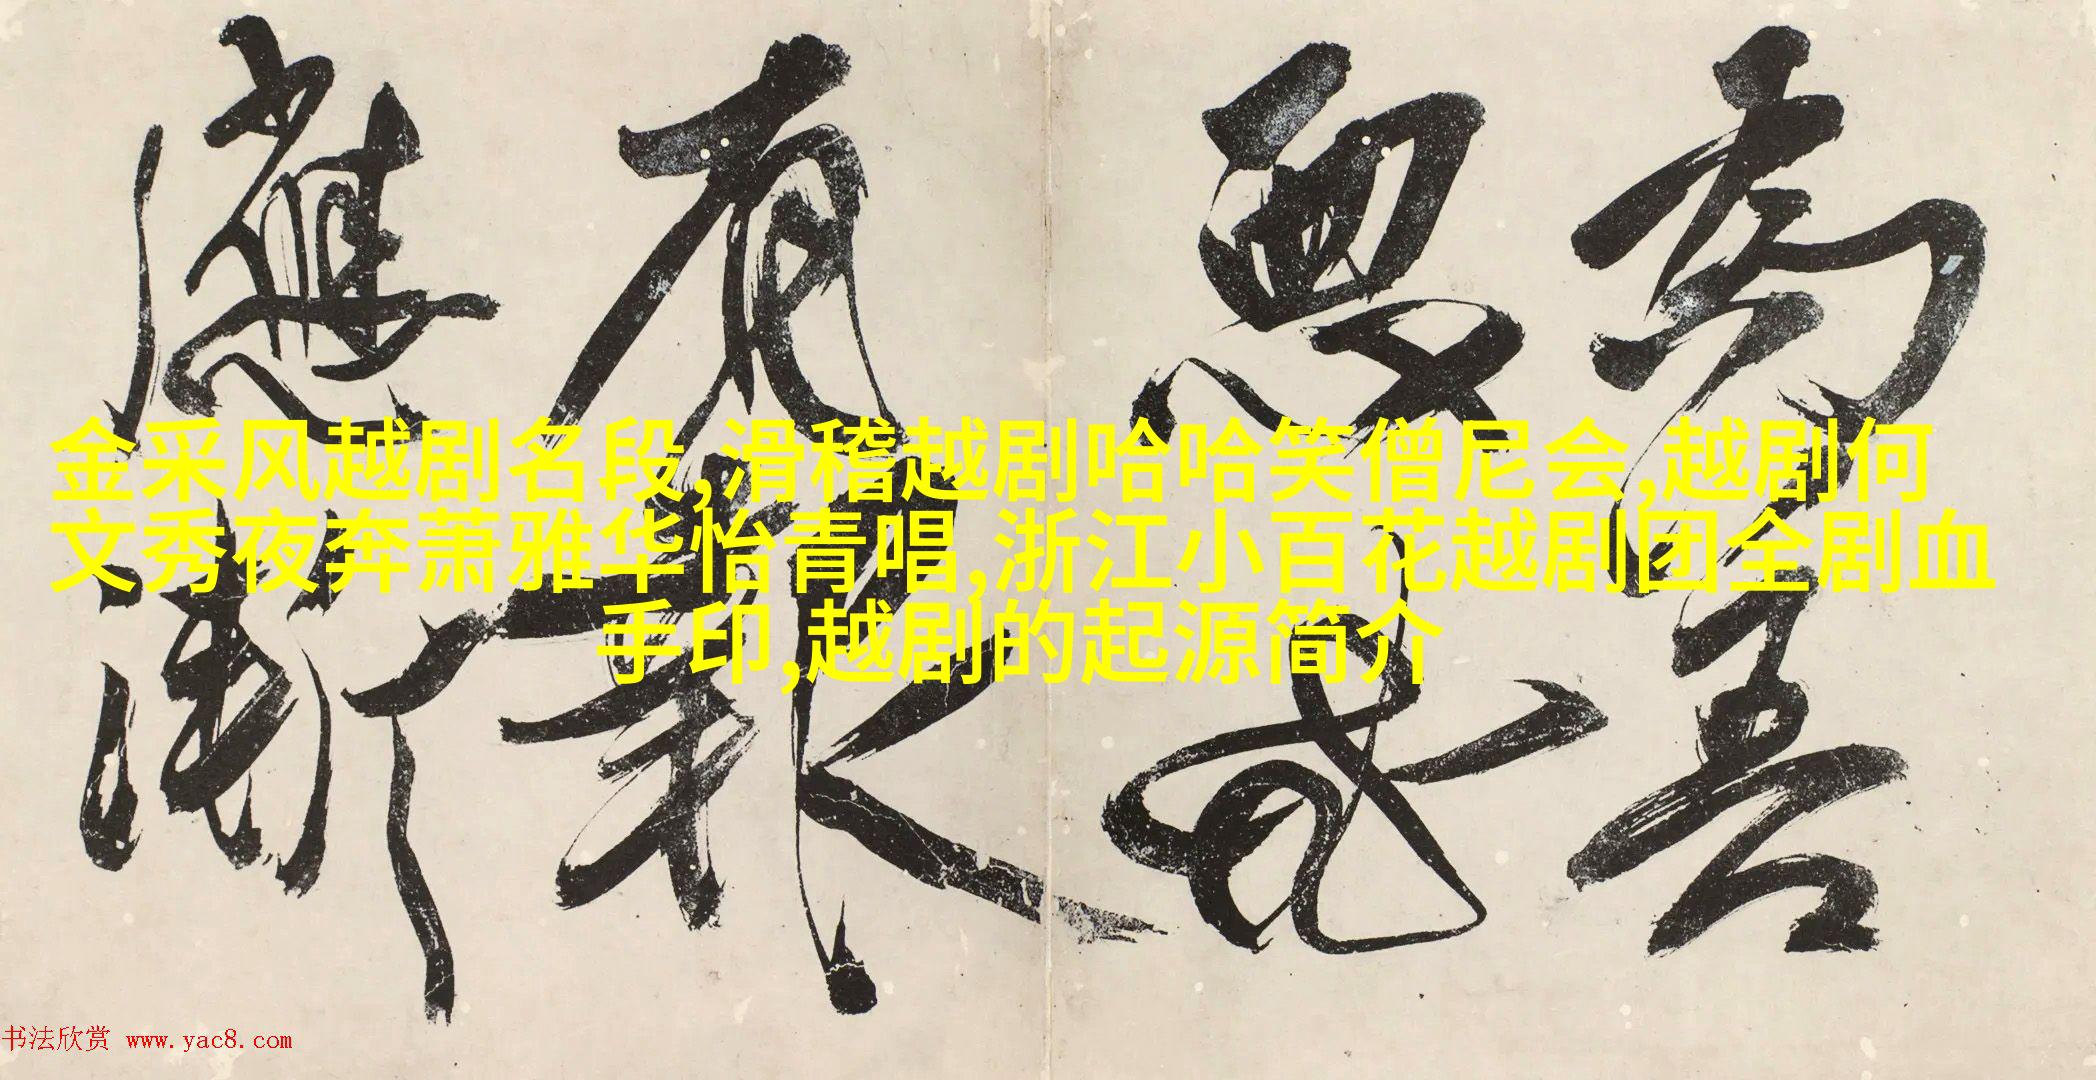 為善
惡
有報
應漸
金采风越剧名段,滑稽越剧哈哈笑僧尼会,越剧何
文秀夜奔萧雅华怡青唱,浙江小百花越剧团全剧血
手印,越剧的起源简介
书法欣赏 www.yac8.com